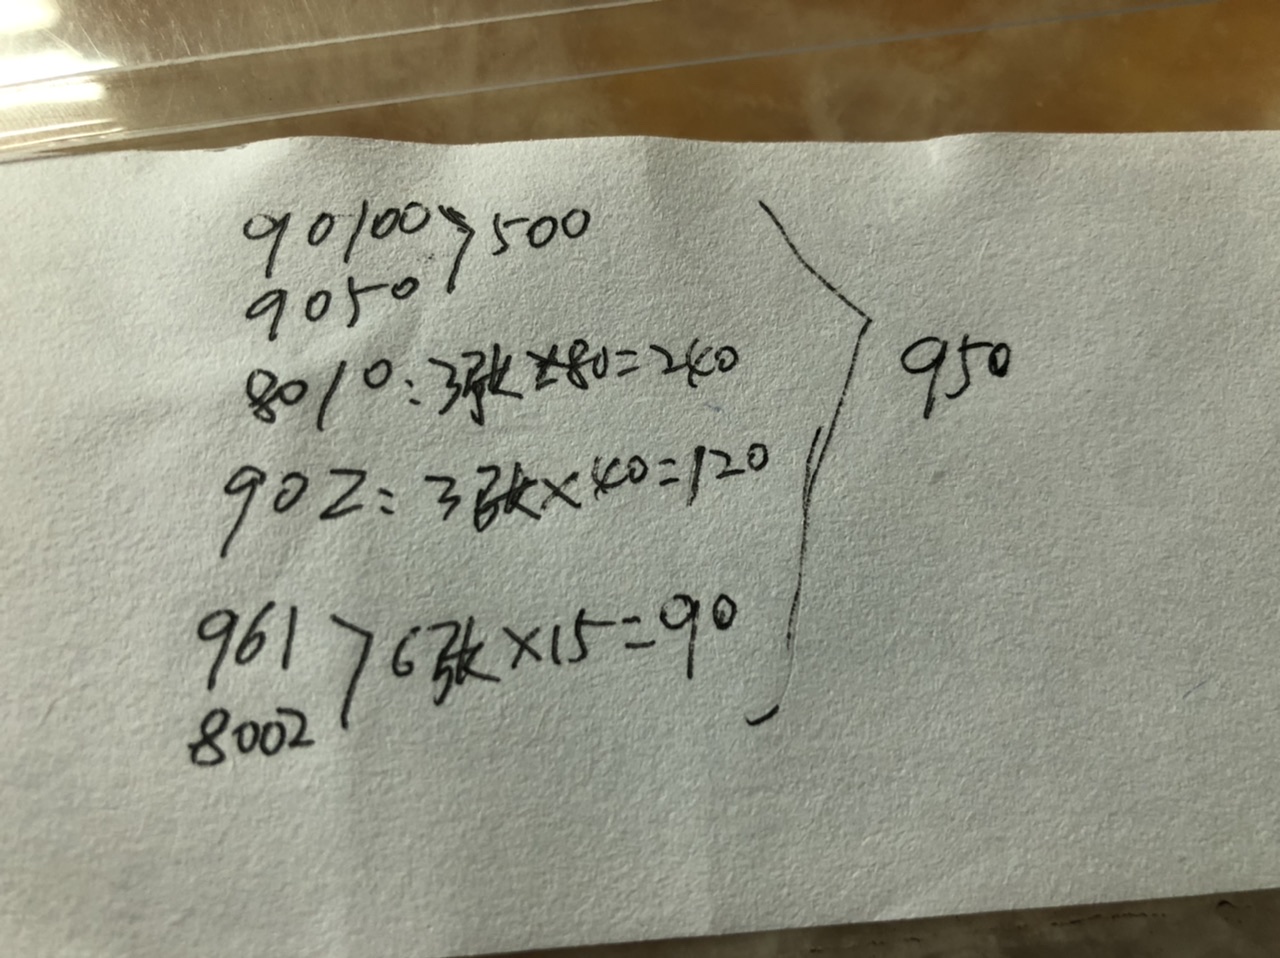 90100 > 500
9050
8010: 3张×80=240
950
902: 3张×40=120
961 > 6张×15=90
8002